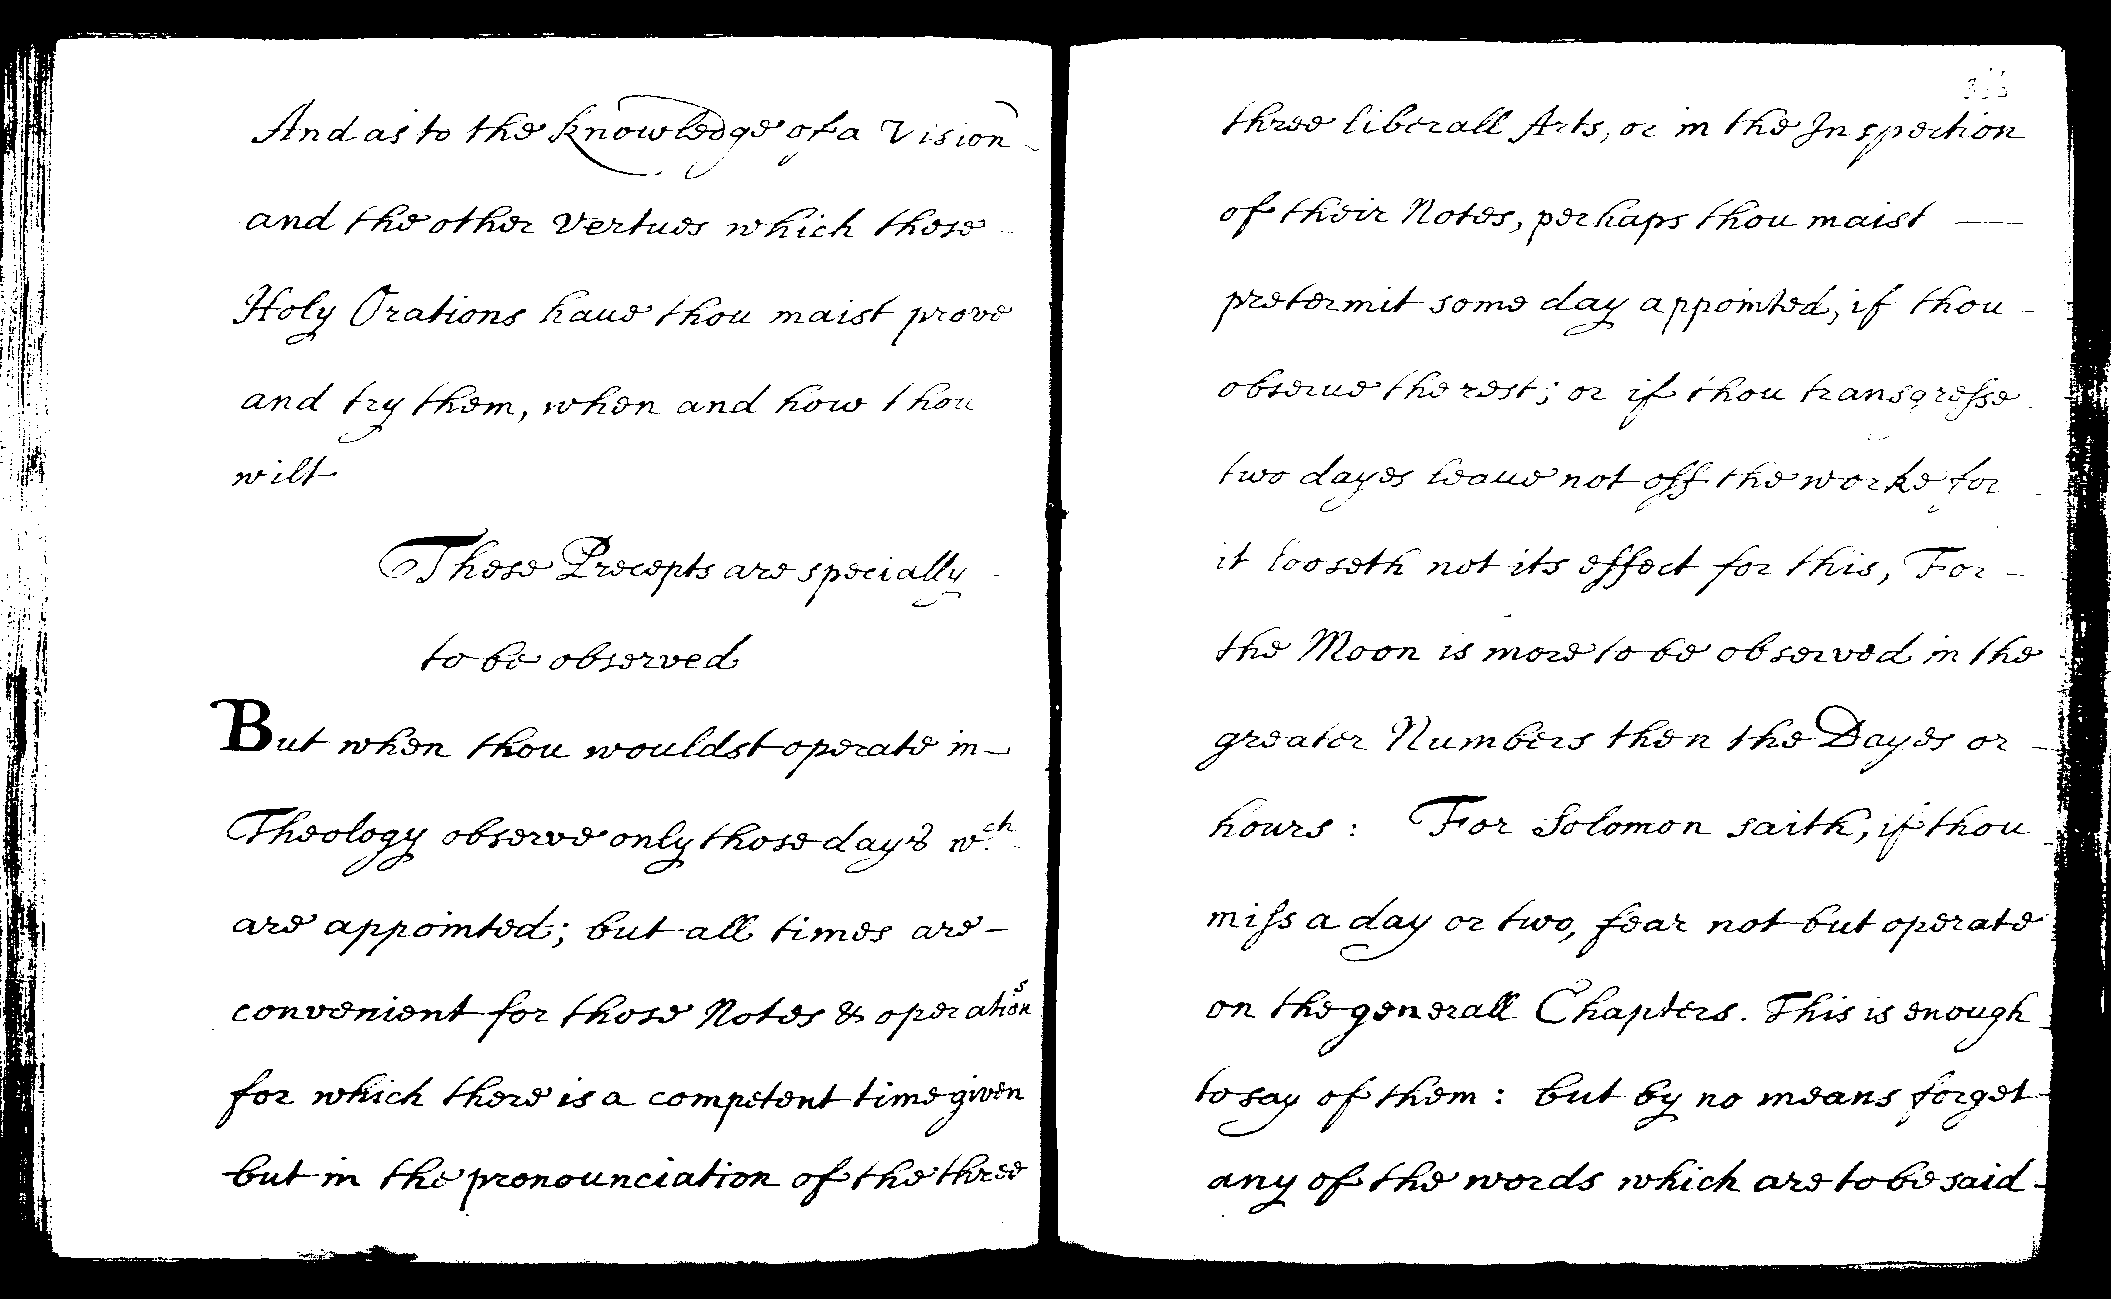 And as to the Knowledge of a Vision -
and the other Vertues which these -
Holy Orations haue thou maist prove
and try them, when and how thou
wilt
These Precepts are specially -
to be observed
But when thou wouldst operate in -
Theology observe only those days w.ch
are appointed; but all times are -
convenient for those Notes & operations
for which there is a competent time given
but in the pronounciation of the three
three liberall Arts, or in the Inspection
of their Notes, perhaps thou maist —
pretermit some day appointed, if thou -
obserue the rest; or if thou transgresse
two dayes leaue not off the worke for
it looseth not its effect for this, For -
the Moon is more to be observed in the
greater Numbers then the Dayes or -
hours : For Solomon saith, if thou
miss a day or two, fear not but operate
on the generall Chapters. This is enough
to say of them : but by no means forget -
any of the words which are to be said -